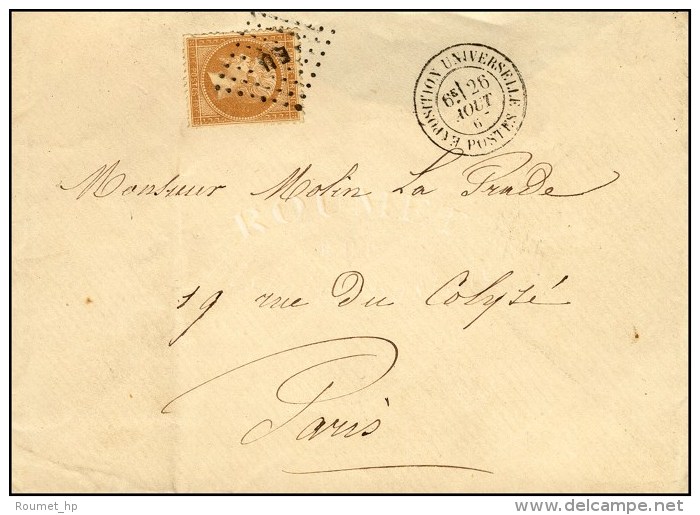 EU
EXPOSITION UNIVERSELLE
POSTES
6ᴱ/ 26
AOUT
6
Monsieur Molin La Prade
ROUMET
19 rue du Colysé
Paris
Roumet_hp
delcampe.net